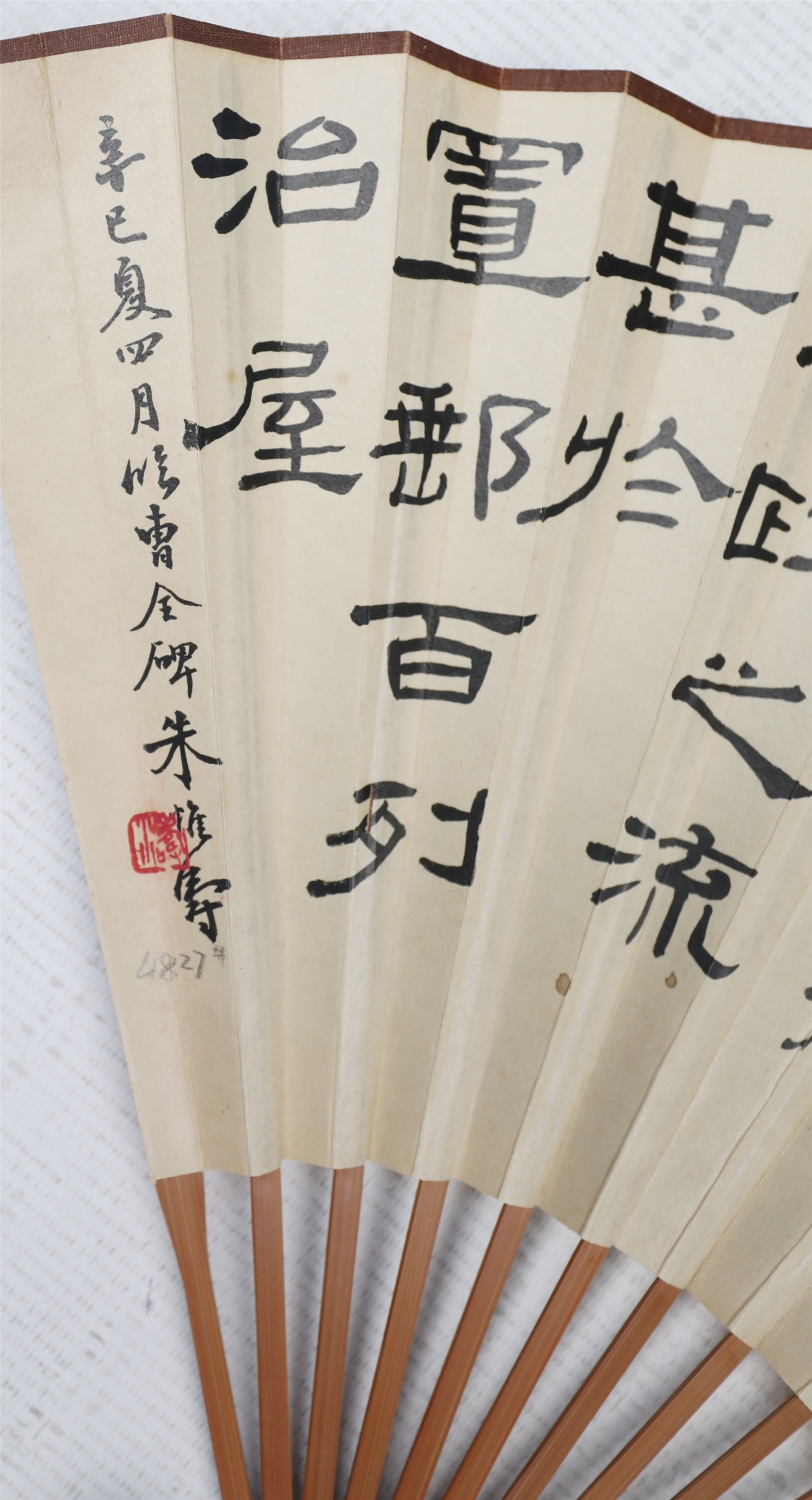 之流
甚於
置郵百列
治屋
辛巳夏四月临曹全碑朱惟寿
4827#